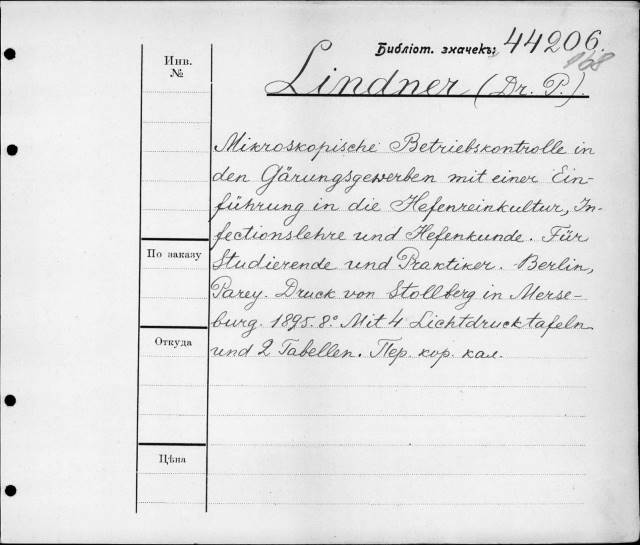 Библіот. значекъ: 44206.
168
Инв.
№
Lindner (Dr. P.)
Mikroskopische Betriebskontrolle in
den Gärungsgewerben mit einer Ein-
führung in die Hefenreinkultur, In-
fectionslehre und Hefenkunde. Für
Studierende und Praktiker. Berlin,
Parey. Druck von Stollberg in Merse-
burg. 1895. 8º. Mit 4 Lichtdrucktafeln
und 2 Tabellen. Пер. кор. кал.
По заказу
Откуда
Цѣна